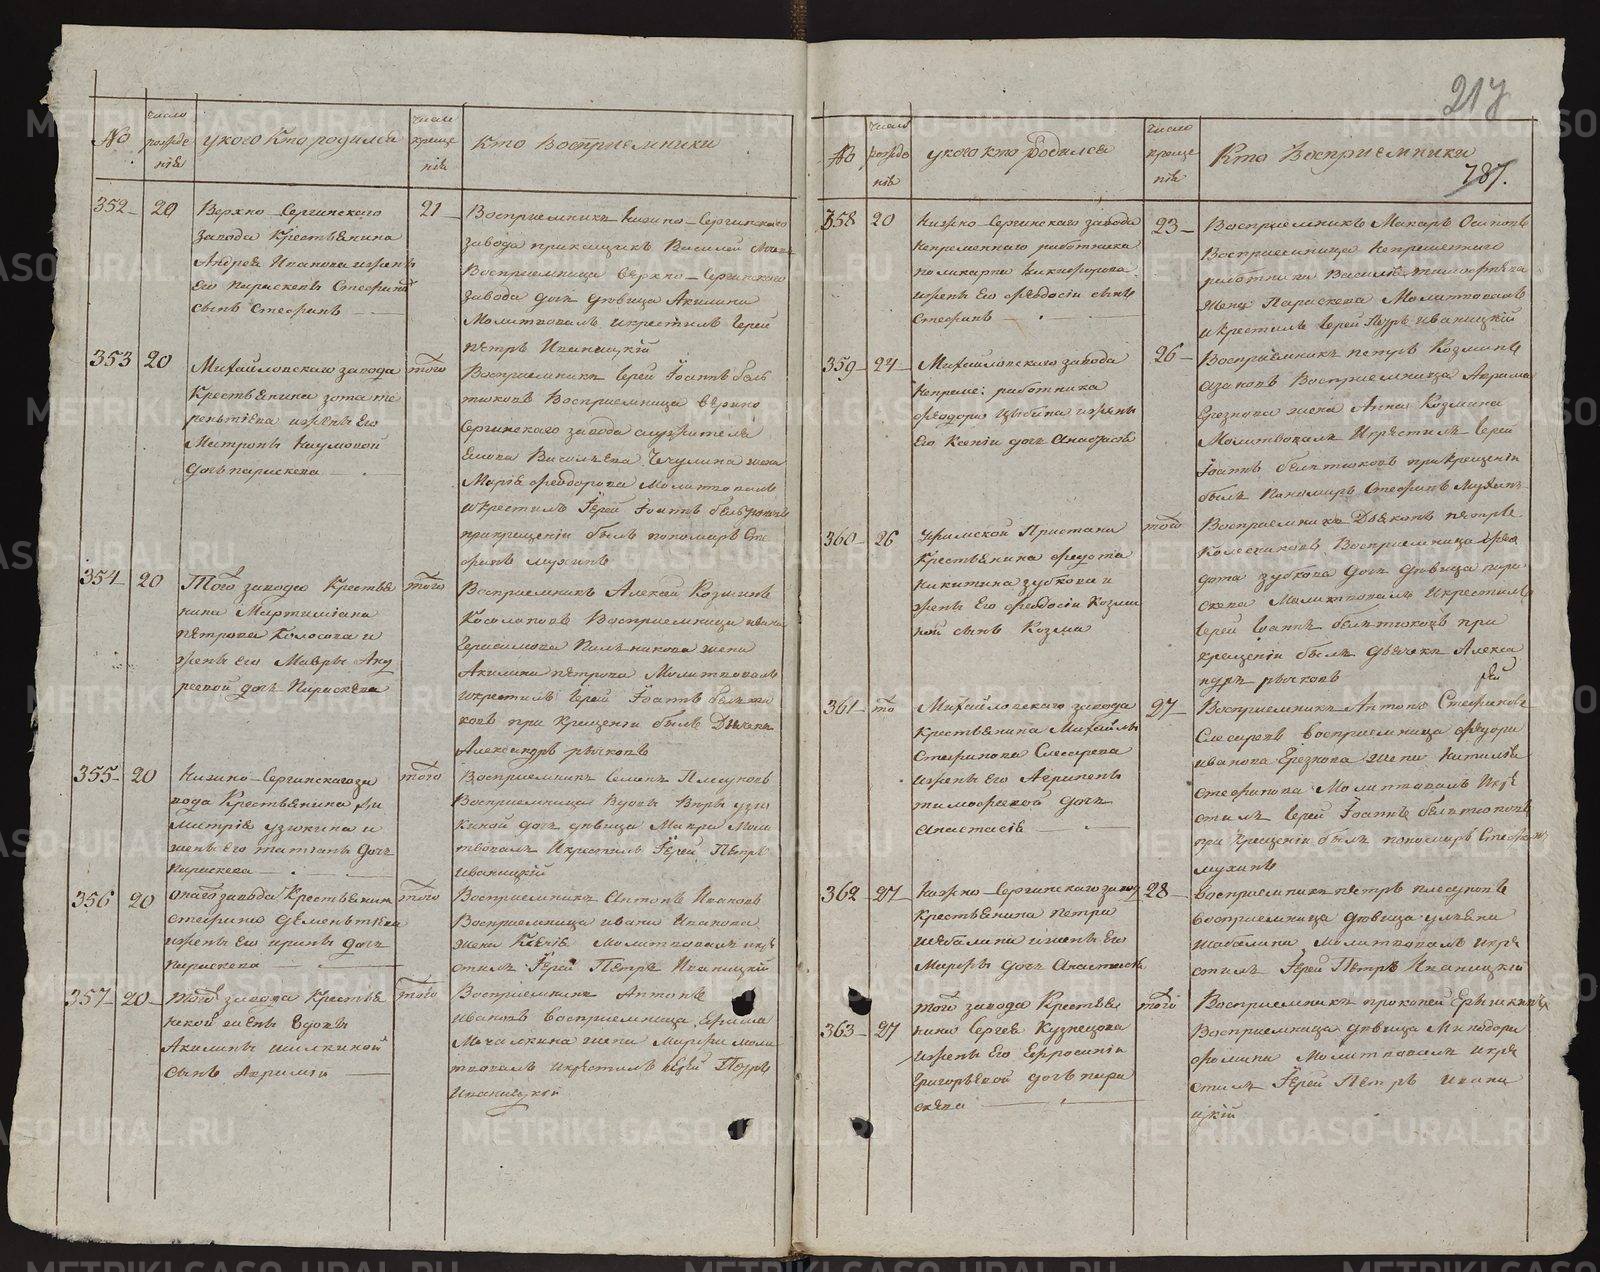 217
787.
№
число рожде нія
у кого кто родился
число креще нія
Кто Восприемники
352
20
Верхно-Сергинскаго
завода Крестьянина
Андрея Иванова и жены
Его Параскевы Стефановой
сынъ Стефанъ
21
Восприемникъ Нижно-Сергинскаго
завода прикащикъ Василей
Восприемница Верхно-Сергинскаго
завода дочь девица Акилина
Молитвовалъ и крестилъ Іерей
Петръ Иваницкій
353
20
Михайловскаго завода
Крестьянина Зота Те
рентіева и жены Его
Матроны Наумовой
дочь параскева
того
Восприемникъ Іерей Іоаннъ Бель
тюковъ Восприемница Верхно
Сергинскаго завода служителя
Василіева Чечулина жена
Марія Феодорова Молитвовалъ
и крестилъ Іерей Іоаннъ Бельтюковъ
при крещеніи былъ пономарь Сте
фанъ Мухинъ
354
20
Того завода Крестья
нина Мартиміана
Петрова Колосова и
жены его Мавры Анд
реевой дочь Параскева
того
Восприемникъ Алексей Козминъ
Косолаповъ Восприемница Ивана
Герасимова Пильникова жена
Акилина Петрова Молитвовалъ
и крестилъ Іерей Іоаннъ Бельтю
ковъ при крещеніи былъ Дьячекъ
Александръ Рычковъ
355
20
Нижно-Сергинскаго за
вода Крестьянина Ди
митрія Узюкина и
жены его Татіаны дочь
Параскева
того
Восприемникъ Семенъ Плесуновъ
Восприемница Вдовы Веры Узю
киной дочь девица Мавра Моли
твовалъ и крестилъ Іерей Петръ
Иваницкій
356
20
онаго завода Крестьянина
Стефана Дементіева
и жены Его Ирины дочь
Параскева
того
Восприемникъ Антонъ Ивановъ
Восприемница Ивана Иванова
жена Молитвовалъ и кре
стилъ Іерей Петръ Иваницкій
357
20
того завода Крестья
нской жены вдовы
Акилины Шилкиной
сынъ Авраамій
того
Восприемникъ Антонъ
Ивановъ восприемница
Мочалкина жена Марфа моли
твовалъ и крестилъ Іерей Петръ
Иваницкій
№
число рожде нія
у кого кто родился
число креще нія
Кто Восприемники
358
20
Нижно-Сергинскаго завода
непременнаго работника
поликарпа Никифорова
и жены Его Феодосіи сынъ
Стефанъ
23
Восприемникъ Макаръ Осиповъ
Восприемница непременнаго
работника Василія Тимофеева
жена Параскева Молитвовалъ
и крестилъ Іерей Петръ Иваницкій
359
24
Михайловскаго завода
непреме: работника
Феодора Цыбина и жены
Его Ксеніи дочь Анастасія
26
Восприемникъ Петръ Козминъ
Азановъ Восприемница Авраама
Ерезнова жена Анна Козмина
Молитвовалъ и крестилъ Іерей
Іоаннъ Бельтюковъ при крещеніи
былъ Пономарь Стефанъ Мухинъ
360
26
Уфимской Пристани
Крестьянина Федота
Никитина Зубкова и
жены Его Феодосіи Козми
ной сынъ Козма
того
Восприемникъ Діаконъ Петръ
Колесниковъ Восприемница Фео
дота Зубкова дочь девица пара
скева Молитвовалъ и крестилъ
Іерей Іоаннъ Бельтюковъ при
крещеніи былъ дьячекъ Алекса
ндръ рычковъ
361
то
Михайловскаго завода
Крестьянина Михайлы
Стефанова Слесарева
и жены Его Агрипены
тимофеевой дочь
Анастасія
27
Восприемникъ Антонъ Стефановъ
Слесаревъ восприемница Феодора
Иванова Ерезнова жена Наталія
Стефанова Молитвовалъ и кре
стилъ Іерей Іоаннъ Бельтюковъ
при крещеніи былъ пономарь Стефанъ
Мухинъ
362
27
Нижно-Сергинскаго завода
Крестьянина Петра
Шабалина и жены Его
Марфы дочь Анастасія
28
Восприемникъ Петръ Плесуновъ
восприемница девица Ульяна
Шабалина молитвовалъ и кре
стилъ Іерей Петръ Иваницкій
363
27
того завода Крестьян
нина Сергея Кузнецова
и жены Его Евросиніи
Григорьевой дочь пара
скева
того
Восприемникъ прокопей
Восприемница девица Минодора
Фомина Молитвовалъ и кре
стилъ Іерей Петръ Ивани
цкій
METRIKI.GASO-URAL.RU